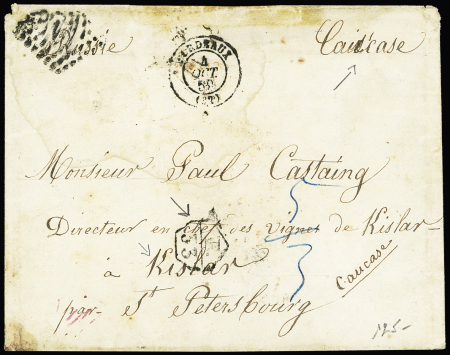 Russie Caucase
BORDEAUX
4
OCT.
(32)
Monsieur Paul Castaing
Directeur en chef des vignes de Kislar
à Kislar
Caucase
par St Petersbourg